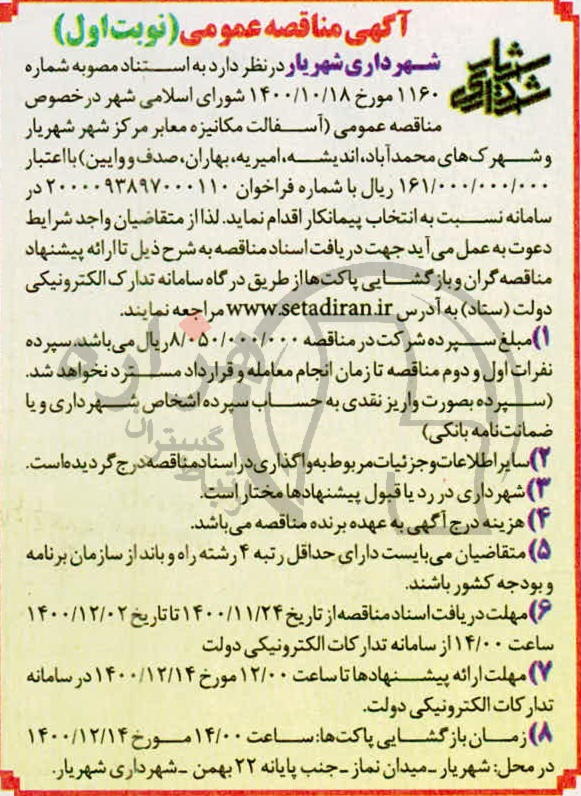 آگهی مناقصه عمومی (نوبت اول)
شهرداری شهریار
شهرداری شهریار در نظر دارد به استناد مصوبه شماره
۱۱۶۰ مورخ ۱۴۰۰/۱۰/۱۸ شورای اسلامی شهر در خصوص
مناقصه عمومی (آسفالت مکانیزه معابر مرکز شهر شهریار
و شهرک‌های محمدآباد، اندیشه، امیریه، بهاران، صدف و وایین) با اعتبار
۱۶۱/۰۰۰/۰۰۰/۰۰۰ ریال با شماره فراخوان ۲۰۰۰۰۹۳۸۹۷۰۰۰۱۱۰ در
سامانه نسبت به انتخاب پیمانکار اقدام نماید. لذا از متقاضیان واجد شرایط
دعوت به عمل می‌آید جهت دریافت اسناد مناقصه به شرح ذیل تا ارائه پیشنهاد
مناقصه‌گران و بازگشایی پاکت‌ها از طریق درگاه سامانه تدارک الکترونیکی
دولت (ستاد) به آدرس www.setadiran.ir مراجعه نمایند.
۱) مبلغ سپرده شرکت در مناقصه ۸/۰۵۰/۰۰۰/۰۰۰ ریال می‌باشد. سپرده
نفرات اول و دوم مناقصه تا زمان انجام معامله و قرارداد مسترد نخواهد شد.
(سپرده بصورت واریز نقدی به حساب سپرده اشخاص شهرداری و یا
ضمانت‌نامه بانکی)
۲) سایر اطلاعات و جزئیات مربوط به واگذاری در اسناد مناقصه درج گردیده است.
۳) شهرداری در رد یا قبول پیشنهادها مختار است.
۴) هزینه درج آگهی به عهده برنده مناقصه می‌باشد.
۵) متقاضیان می‌بایست دارای حداقل رتبه ۴ رشته راه و باند از سازمان برنامه
و بودجه کشور باشند.
۶) مهلت دریافت اسناد مناقصه از تاریخ ۱۴۰۰/۱۱/۲۴ تا تاریخ ۱۴۰۰/۱۲/۰۲
ساعت ۱۴/۰۰ از سامانه تدارکات الکترونیکی دولت
۷) مهلت ارائه پیشنهادها تا ساعت ۱۲/۰۰ مورخ ۱۴۰۰/۱۲/۱۴ در سامانه
تدارکات الکترونیکی دولت.
۸) زمان بازگشایی پاکت‌ها: ساعت ۱۴/۰۰ مورخ ۱۴۰۰/۱۲/۱۴
در محل: شهریار ـ میدان نماز ـ جنب پایانه ۲۲ بهمن ـ شهرداری شهریار.
هزاره
گستران
ارتباط